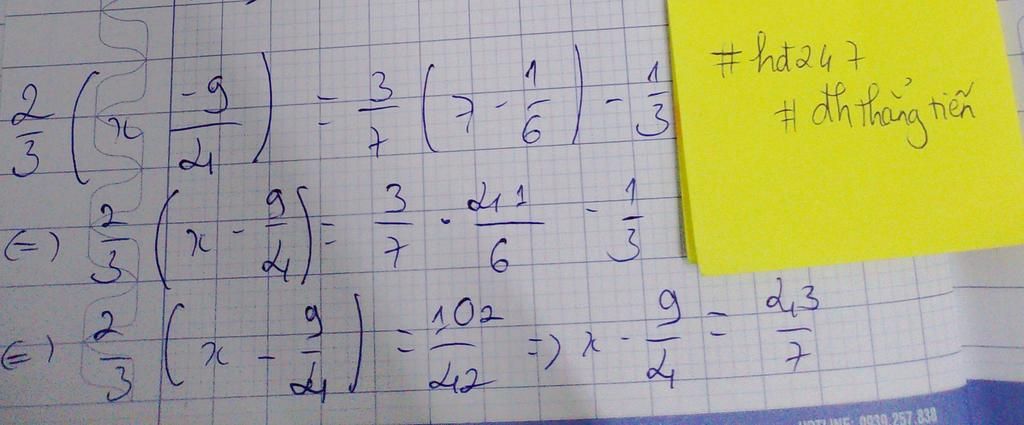 2/3 ( x -9/4 ) = 3/7 ( 7 - 1/6 ) - 1/3
(=) 2/3 ( x - 9/4 ) = 3/7 . 41/6 - 1/3
(=) 2/3 ( x - 9/4 ) = 102/42 => x - 9/4 = 43/7
#hd247
#đhthẳngtiến
HOTLINE: 0939.257.838